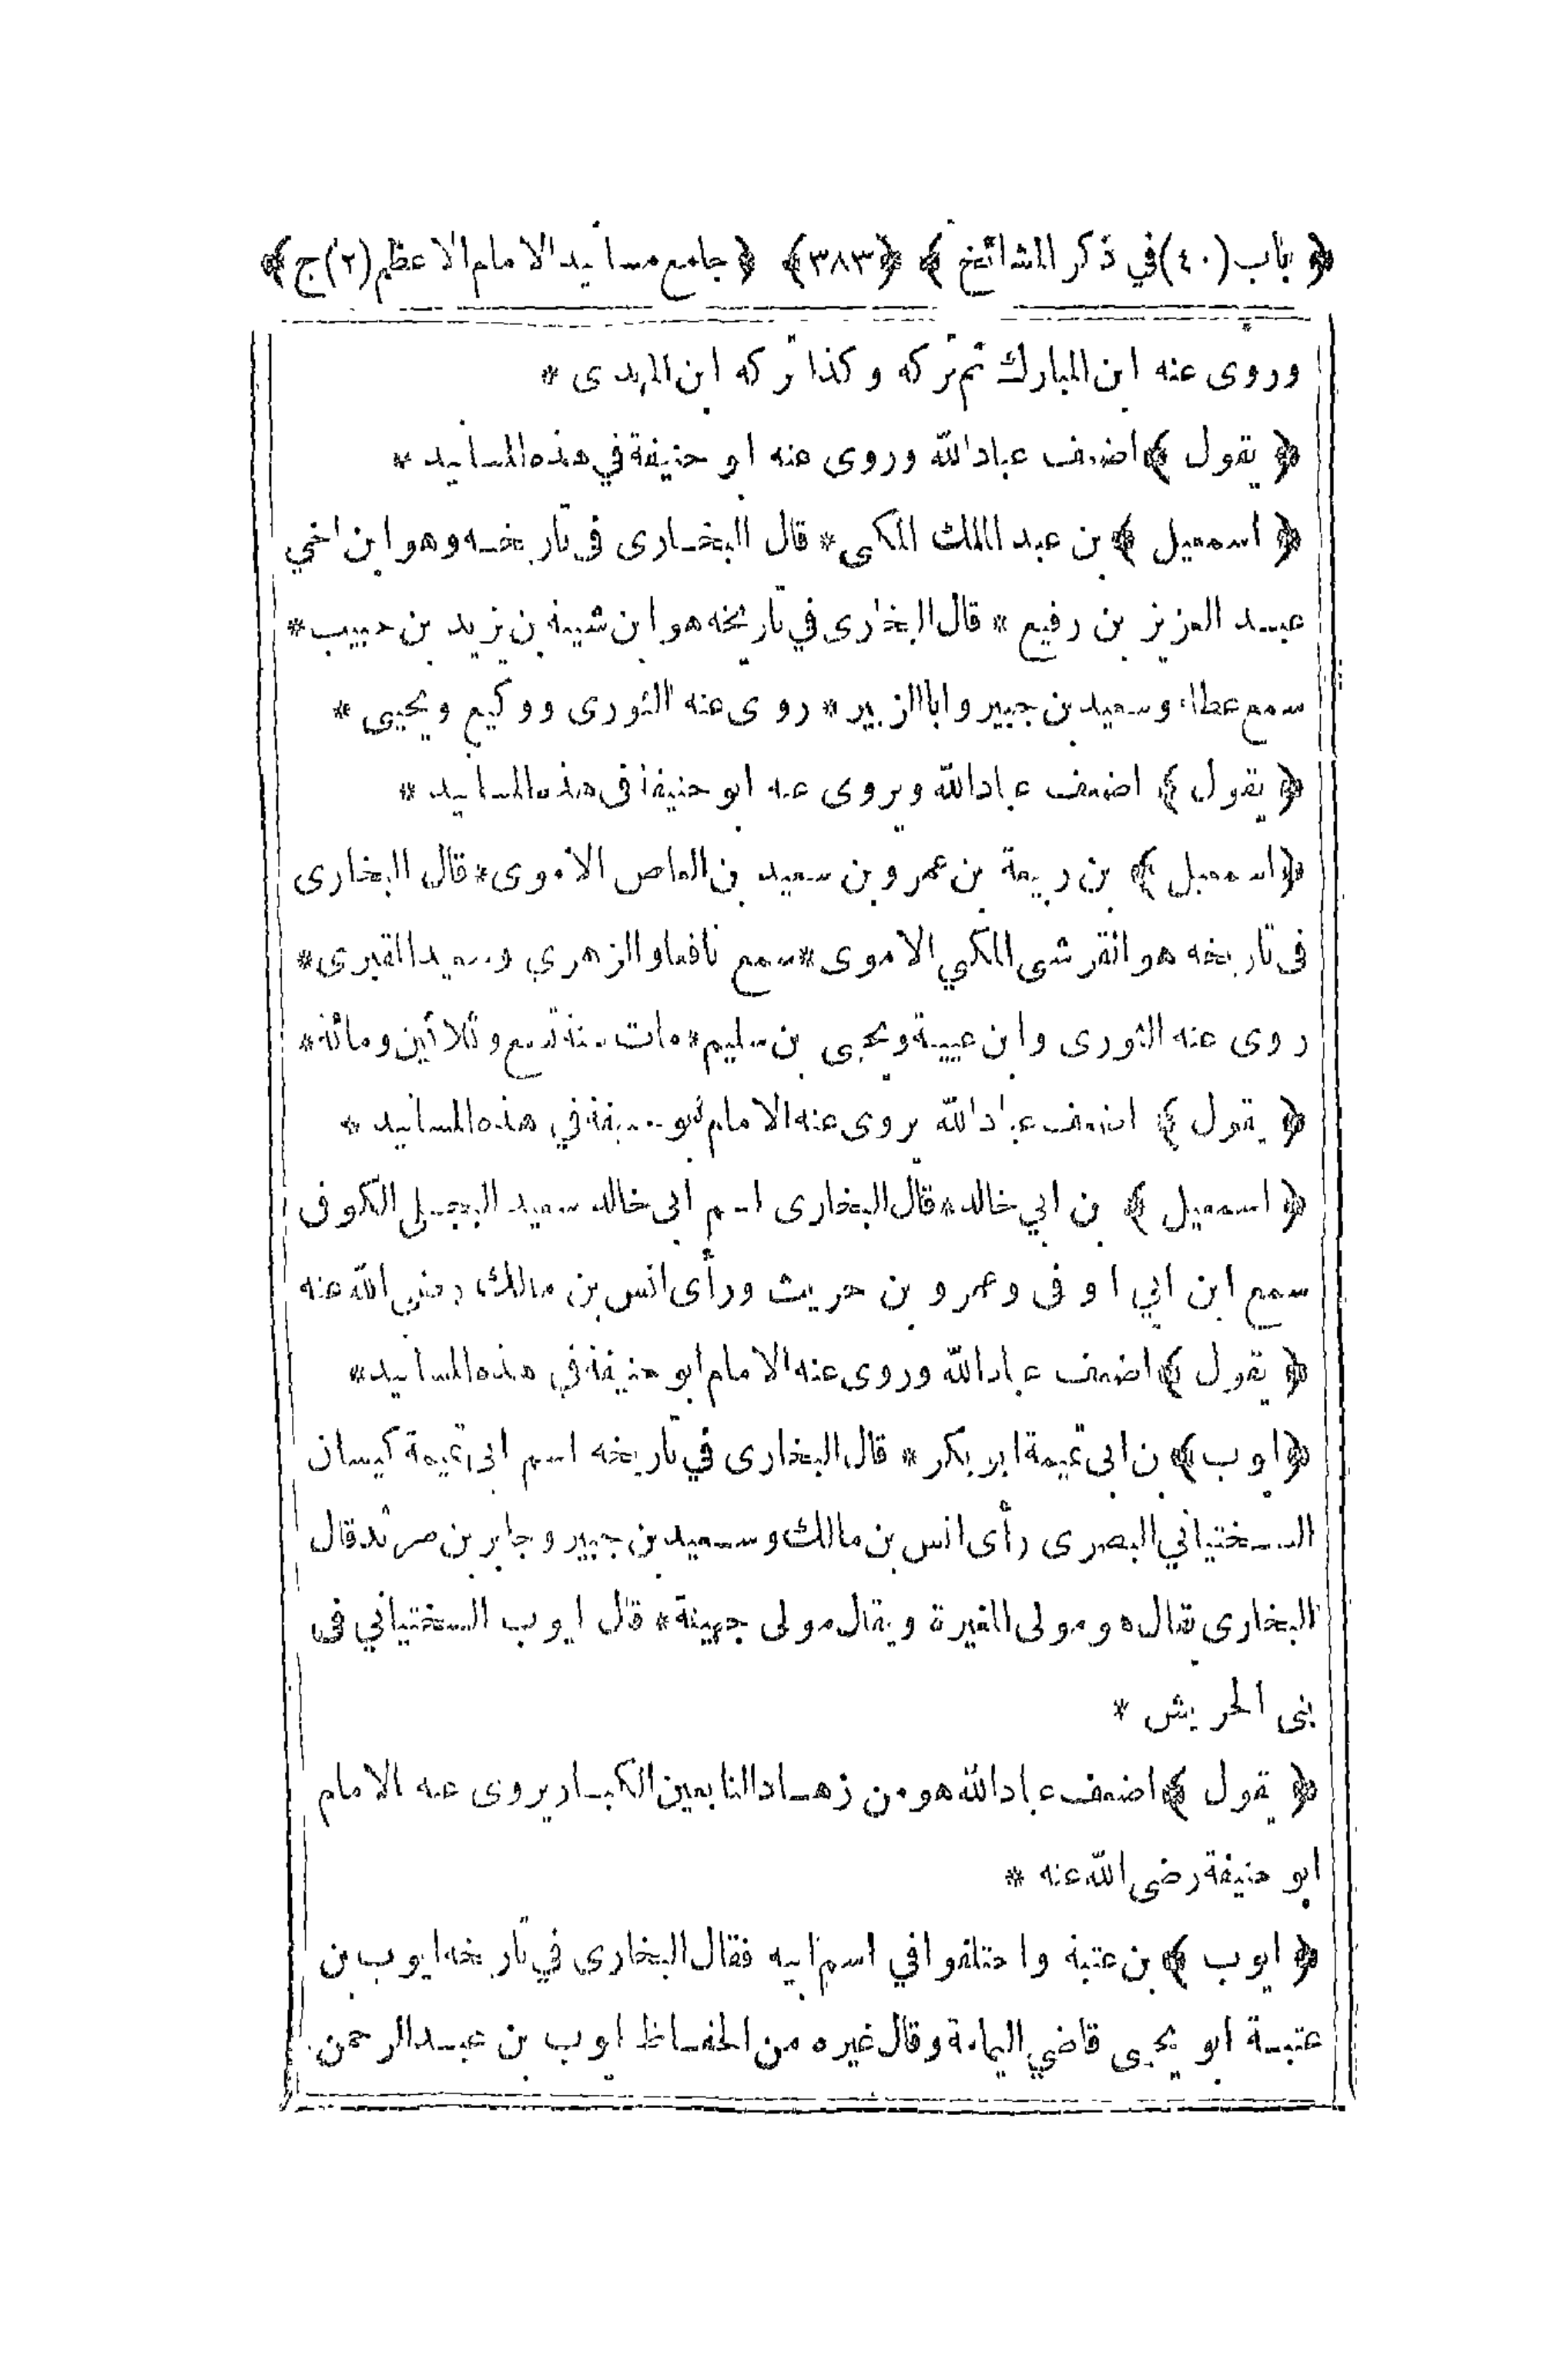 ﴿ باب (٤٠) في ذكر المشائخ ﴾ ﴿٣٨٣﴾ ﴿ جامع مسانيد الامام الاعظم (٢) ج ﴾
وروى عنه ابن المبارك ثم تركه وكذا تركه ابن المهدى *
﴿ يقول ﴾ اضعف عباد الله وروى عنه ابو حنيفة في هذه المسانيد *
﴿ اسمعيل ﴾ بن عبد الملك المكى * قال البخارى فى تاريخه وهو ابن اخي
عبد العزيز بن رفيع * قال البخارى في تاريخه هو ابن شيبة بن يزيد بن حبيب *
سمع عطاء وسعيد بن جبير وابا الزبير * روى عنه الثورى ووكيع ويحيى *
﴿ يقول ﴾ اضعف عباد الله ويروى عنه ابو حنيفة فى هذه المسانيد *
﴿ اسمعيل ﴾ بن ربيعة بن عمرو بن سعيد بن العاص الاموى * قال البخارى
فى تاريخه هو القرشى المكي الاموى * سمع نافعا والزهري وسعيد المقبرى *
روى عنه الثورى وابن عيينة ويحيى بن سليم * مات سنة تسع وثلاثين ومائة *
﴿ يقول ﴾ اضعف عباد الله يروى عنه الامام ابو حنيفة في هذه المسانيد *
﴿ اسمعيل ﴾ بن ابي خالد * قال البخارى اسم ابى خالد سعيد البجلى الكوفى
سمع ابن ابي اوفى وعمرو بن حريث ورأى انس بن مالك رضي الله عنه
﴿ يقول ﴾ اضعف عباد الله وروى عنه الامام ابو حنيفة في هذه المسانيد *
﴿ ايوب ﴾ بن ابى تميمة ابو بكر * قال البخارى في تاريخه اسم ابى تميمة كيسان
السختياني البصرى رأى انس بن مالك وسعيد بن جبير وجابر بن مرثد قال
البخارى يقال هو مولى المغيرة ويقال مولى جهينة * قال ايوب السختياني فى
بنى الحريش *
﴿ يقول ﴾ اضعف عباد الله هو من زهاد التابعين الكبار يروى عنه الامام
ابو حنيفة رضى الله عنه *
﴿ ايوب ﴾ بن عتبة واختلفوا في اسم ابيه فقال البخارى في تاريخه ايوب بن
عتبة ابو يحيى قاضي اليمامة وقال غيره من الحفاظ ايوب بن عبد الرحمن